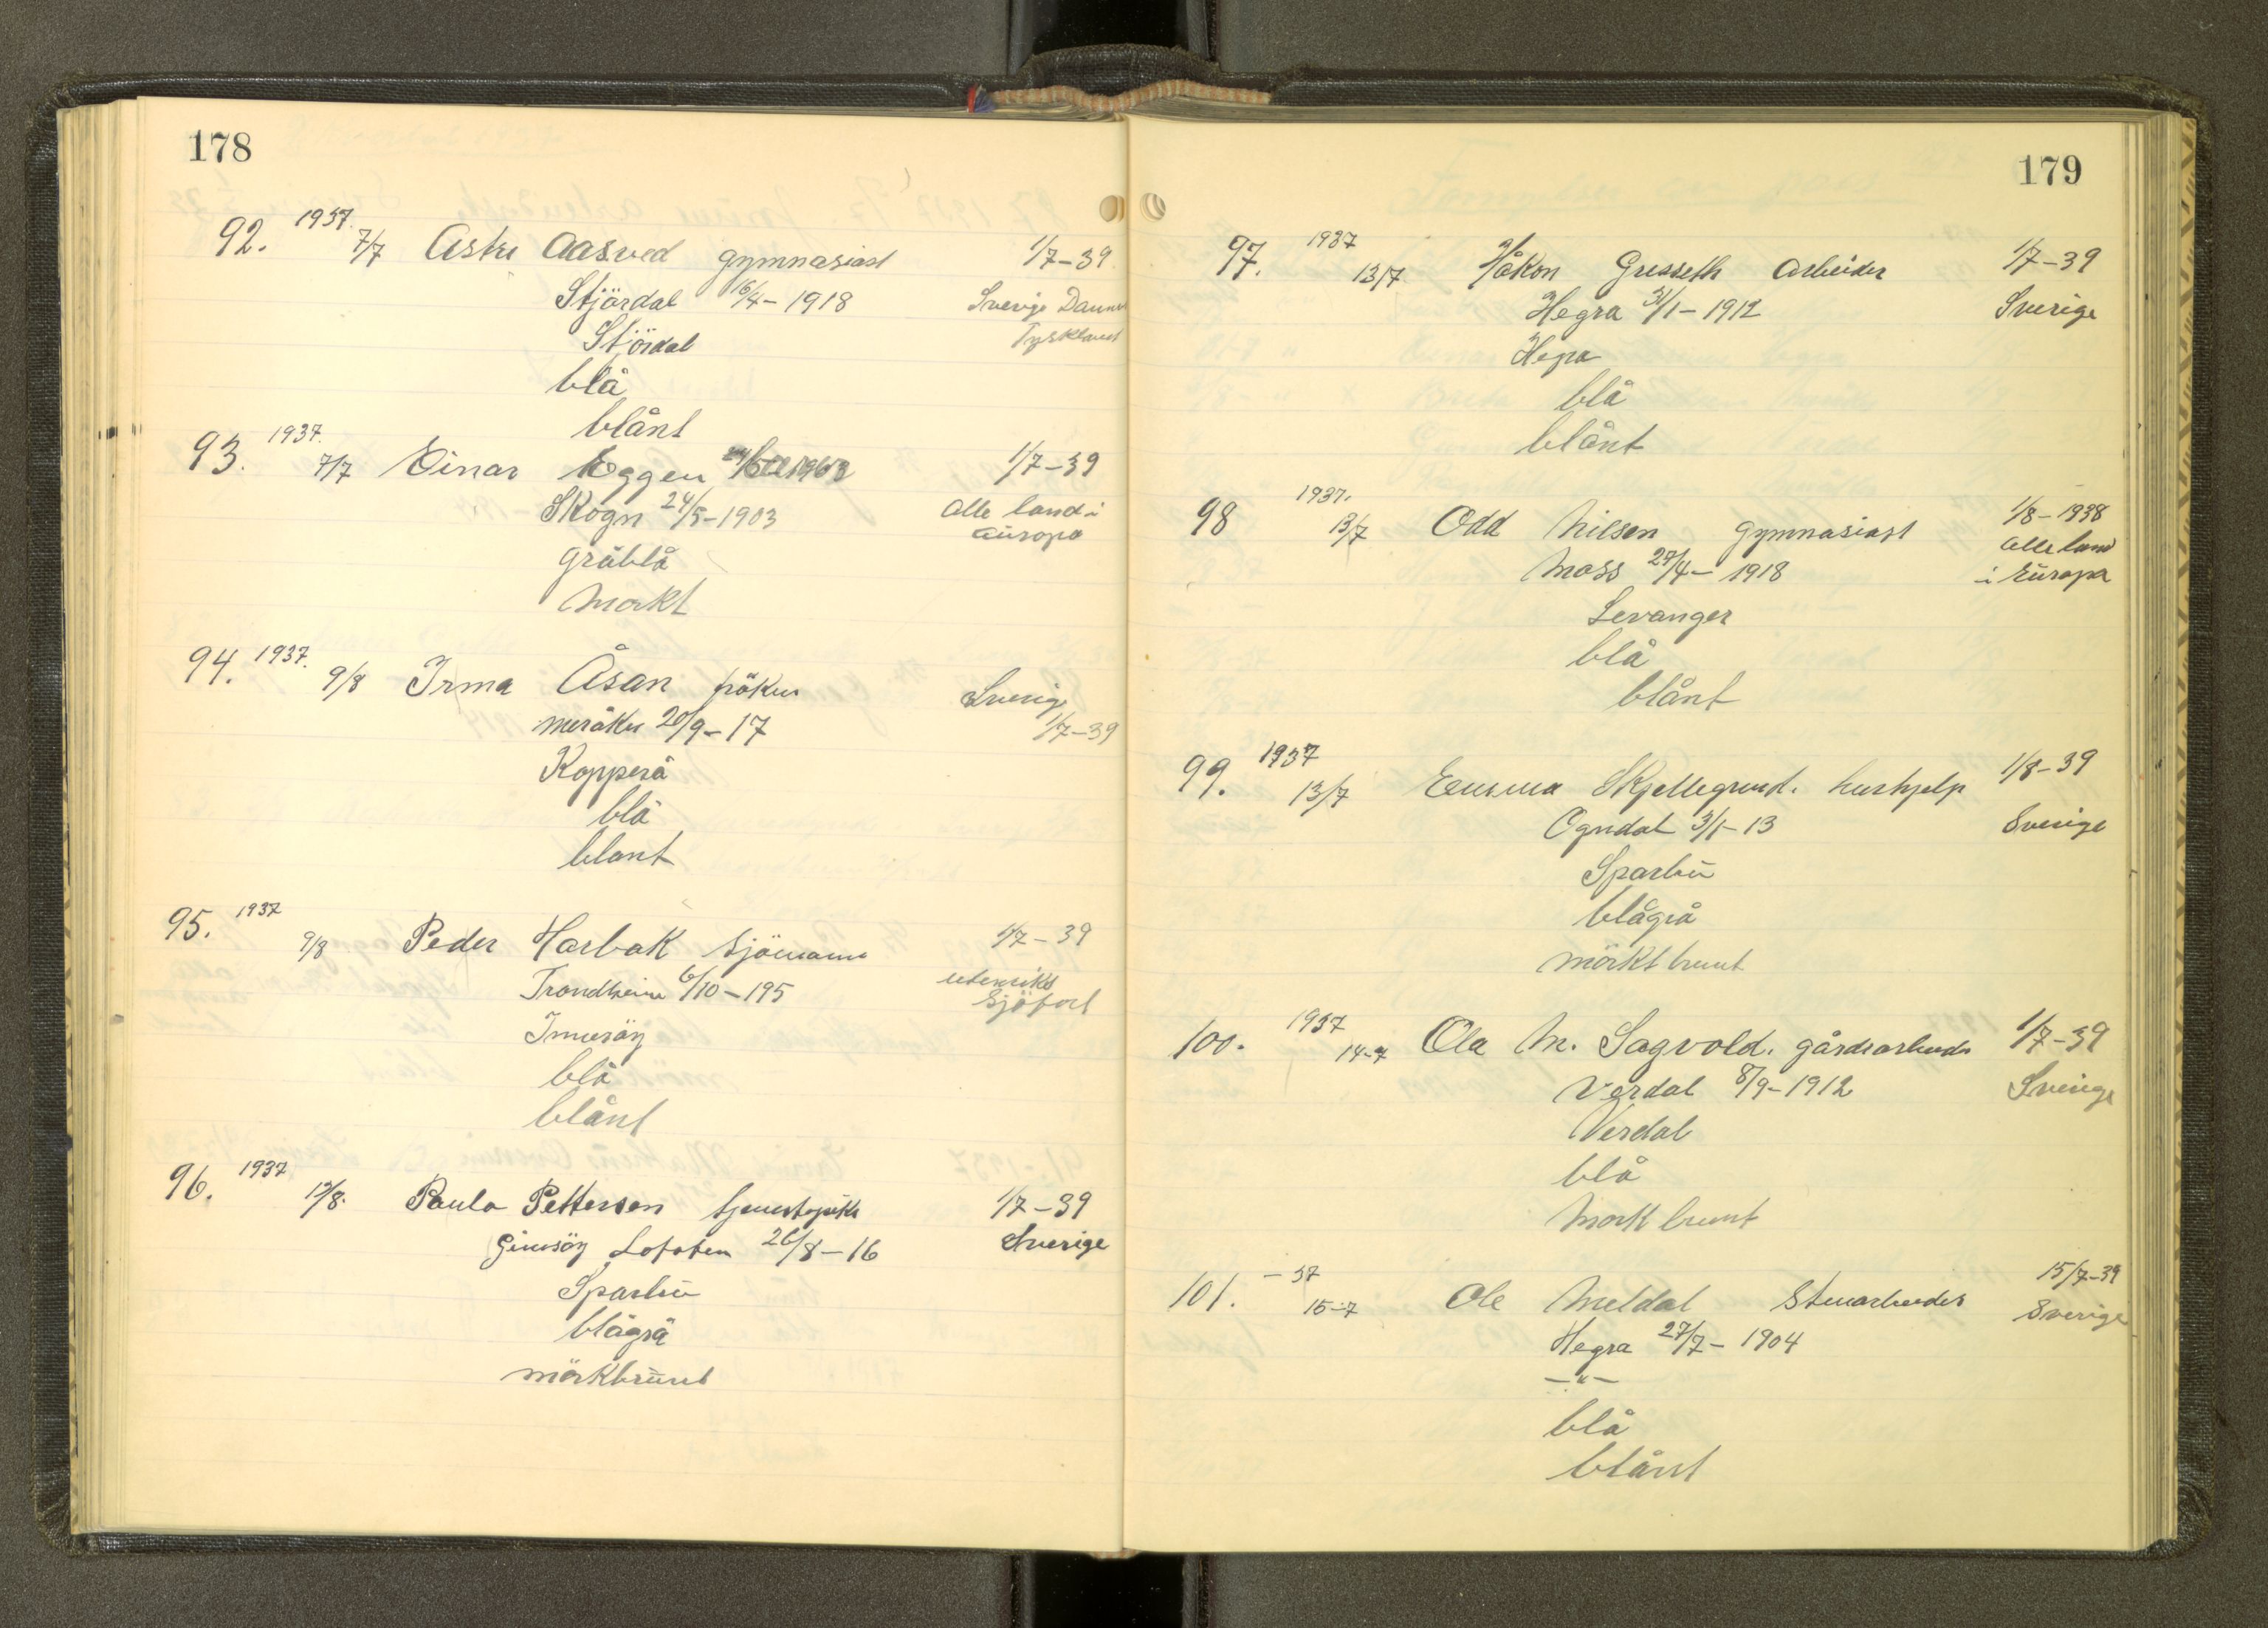 178
92. 1937. 7/7 Astri Aasved gymnasiast 1/7-39
Stjördal 16/4-1918 Sverige Danm
Stjördal Tyskland
blå
blånt
93. 1937. 7/7 Einar Eggen 1/7-39
Skogn 24/5-1903 Alle land i
gråblå Europa
Mørkt
94. 1937. 9/8 Irma Åsan fröken Sverige
Meråker 20/9-17 1/7-39
Kopperå
blå
blont
95. 1937 9/8 Peder Harbak Sjömann 1/7-39
Trondheim 6/10-195 utenriks
Inderöy Sjöfart
blå
blånt
96. 1937 12/8. Paula Pettersen tjenestepike 1/7-39
Gimsöy Lofoten 26/8-16 Sverige
Sparbu
blågrå
mörkbrunt
179
97. 1937 13/7 Håkon Gresseth Arbeider 1/7-39
Hegra 31/1-1912 Sverige
Hegra
blå
blånt
98 1937. 13/7 Odd Nilsen gymnasiast 1/8-1938
Moss 27/4-1918 Alle land
Levanger i Europa
blå
blånt
99. 1937 13/7 Emma Skjellegrind. hushjelp 1/8-39
Ogndal 3/1-13 Sverige
Sparbu
blågrå
mörkt brunt
100. 1937 14-7 Ola M. Sagvold. gårdsarbeider 1/7-39
Verdal 8/9-1912 Sverige
Verdal
blå
Mørk brunt
101. -37 15-7 Ole Meldal Stenarbeider 15/7-39
Hegra 27/7-1904 Sverige
-"-
blå
blånt